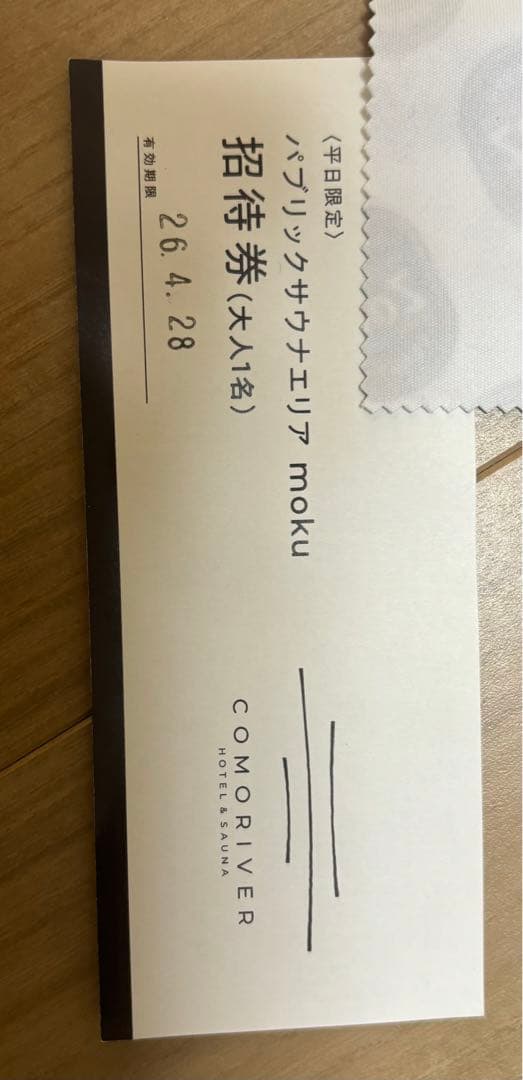 〈平日限定〉
パブリックサウナエリア moku
招待券(大人1名)
有効期限
26.4.28
COMORIVER
HOTEL & SAUNA